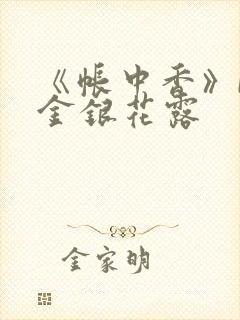 《帳中香》
金銀花露
金家明